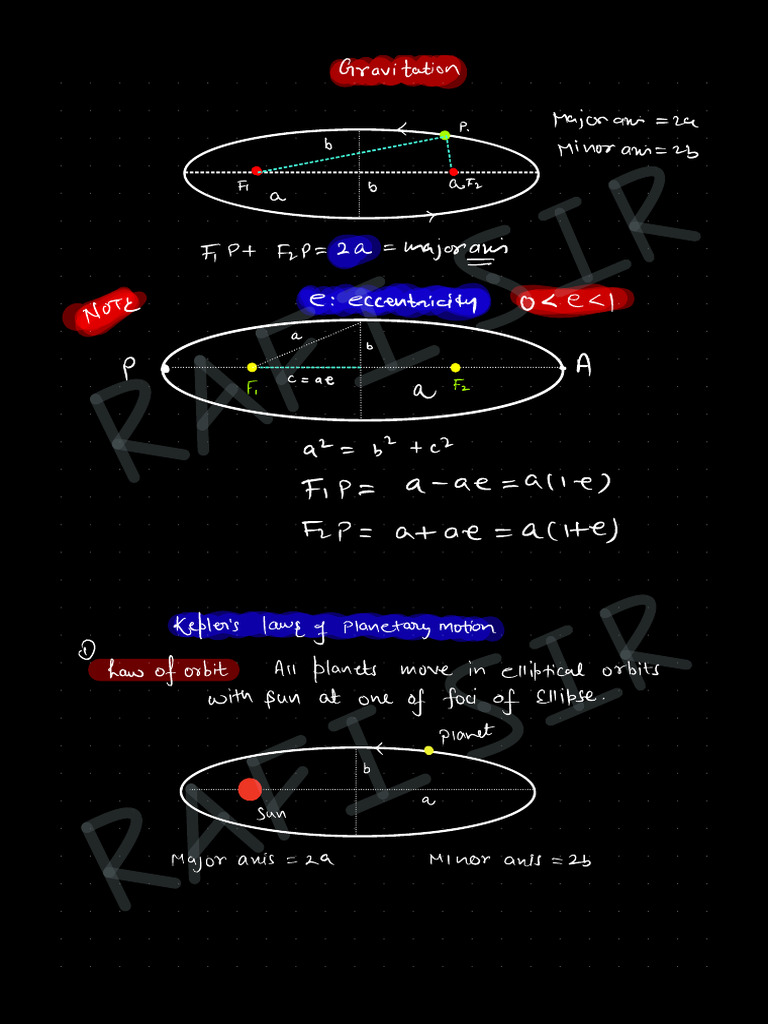 Gravitation
P.
Major axis = 2a
Minor axis = 2b
b
F₁
a
b
a
F₂
F₁P + F₂P = 2a = major axis
NOTE
e: eccentricity
0 < e < 1
a
b
P
A
F₁
c = ae
a
F₂
a² = b² + c²
F₁P = a - ae = a(1-e)
F₂P = a + ae = a(1+e)
Kepler's laws of planetary motion
①
Law of orbit All planets move in elliptical orbits
with sun at one of foci of Ellipse.
Planet
b
a
Sun
Major axis = 2a
Minor axis = 2b
RAFI SIR
RAFI SIR